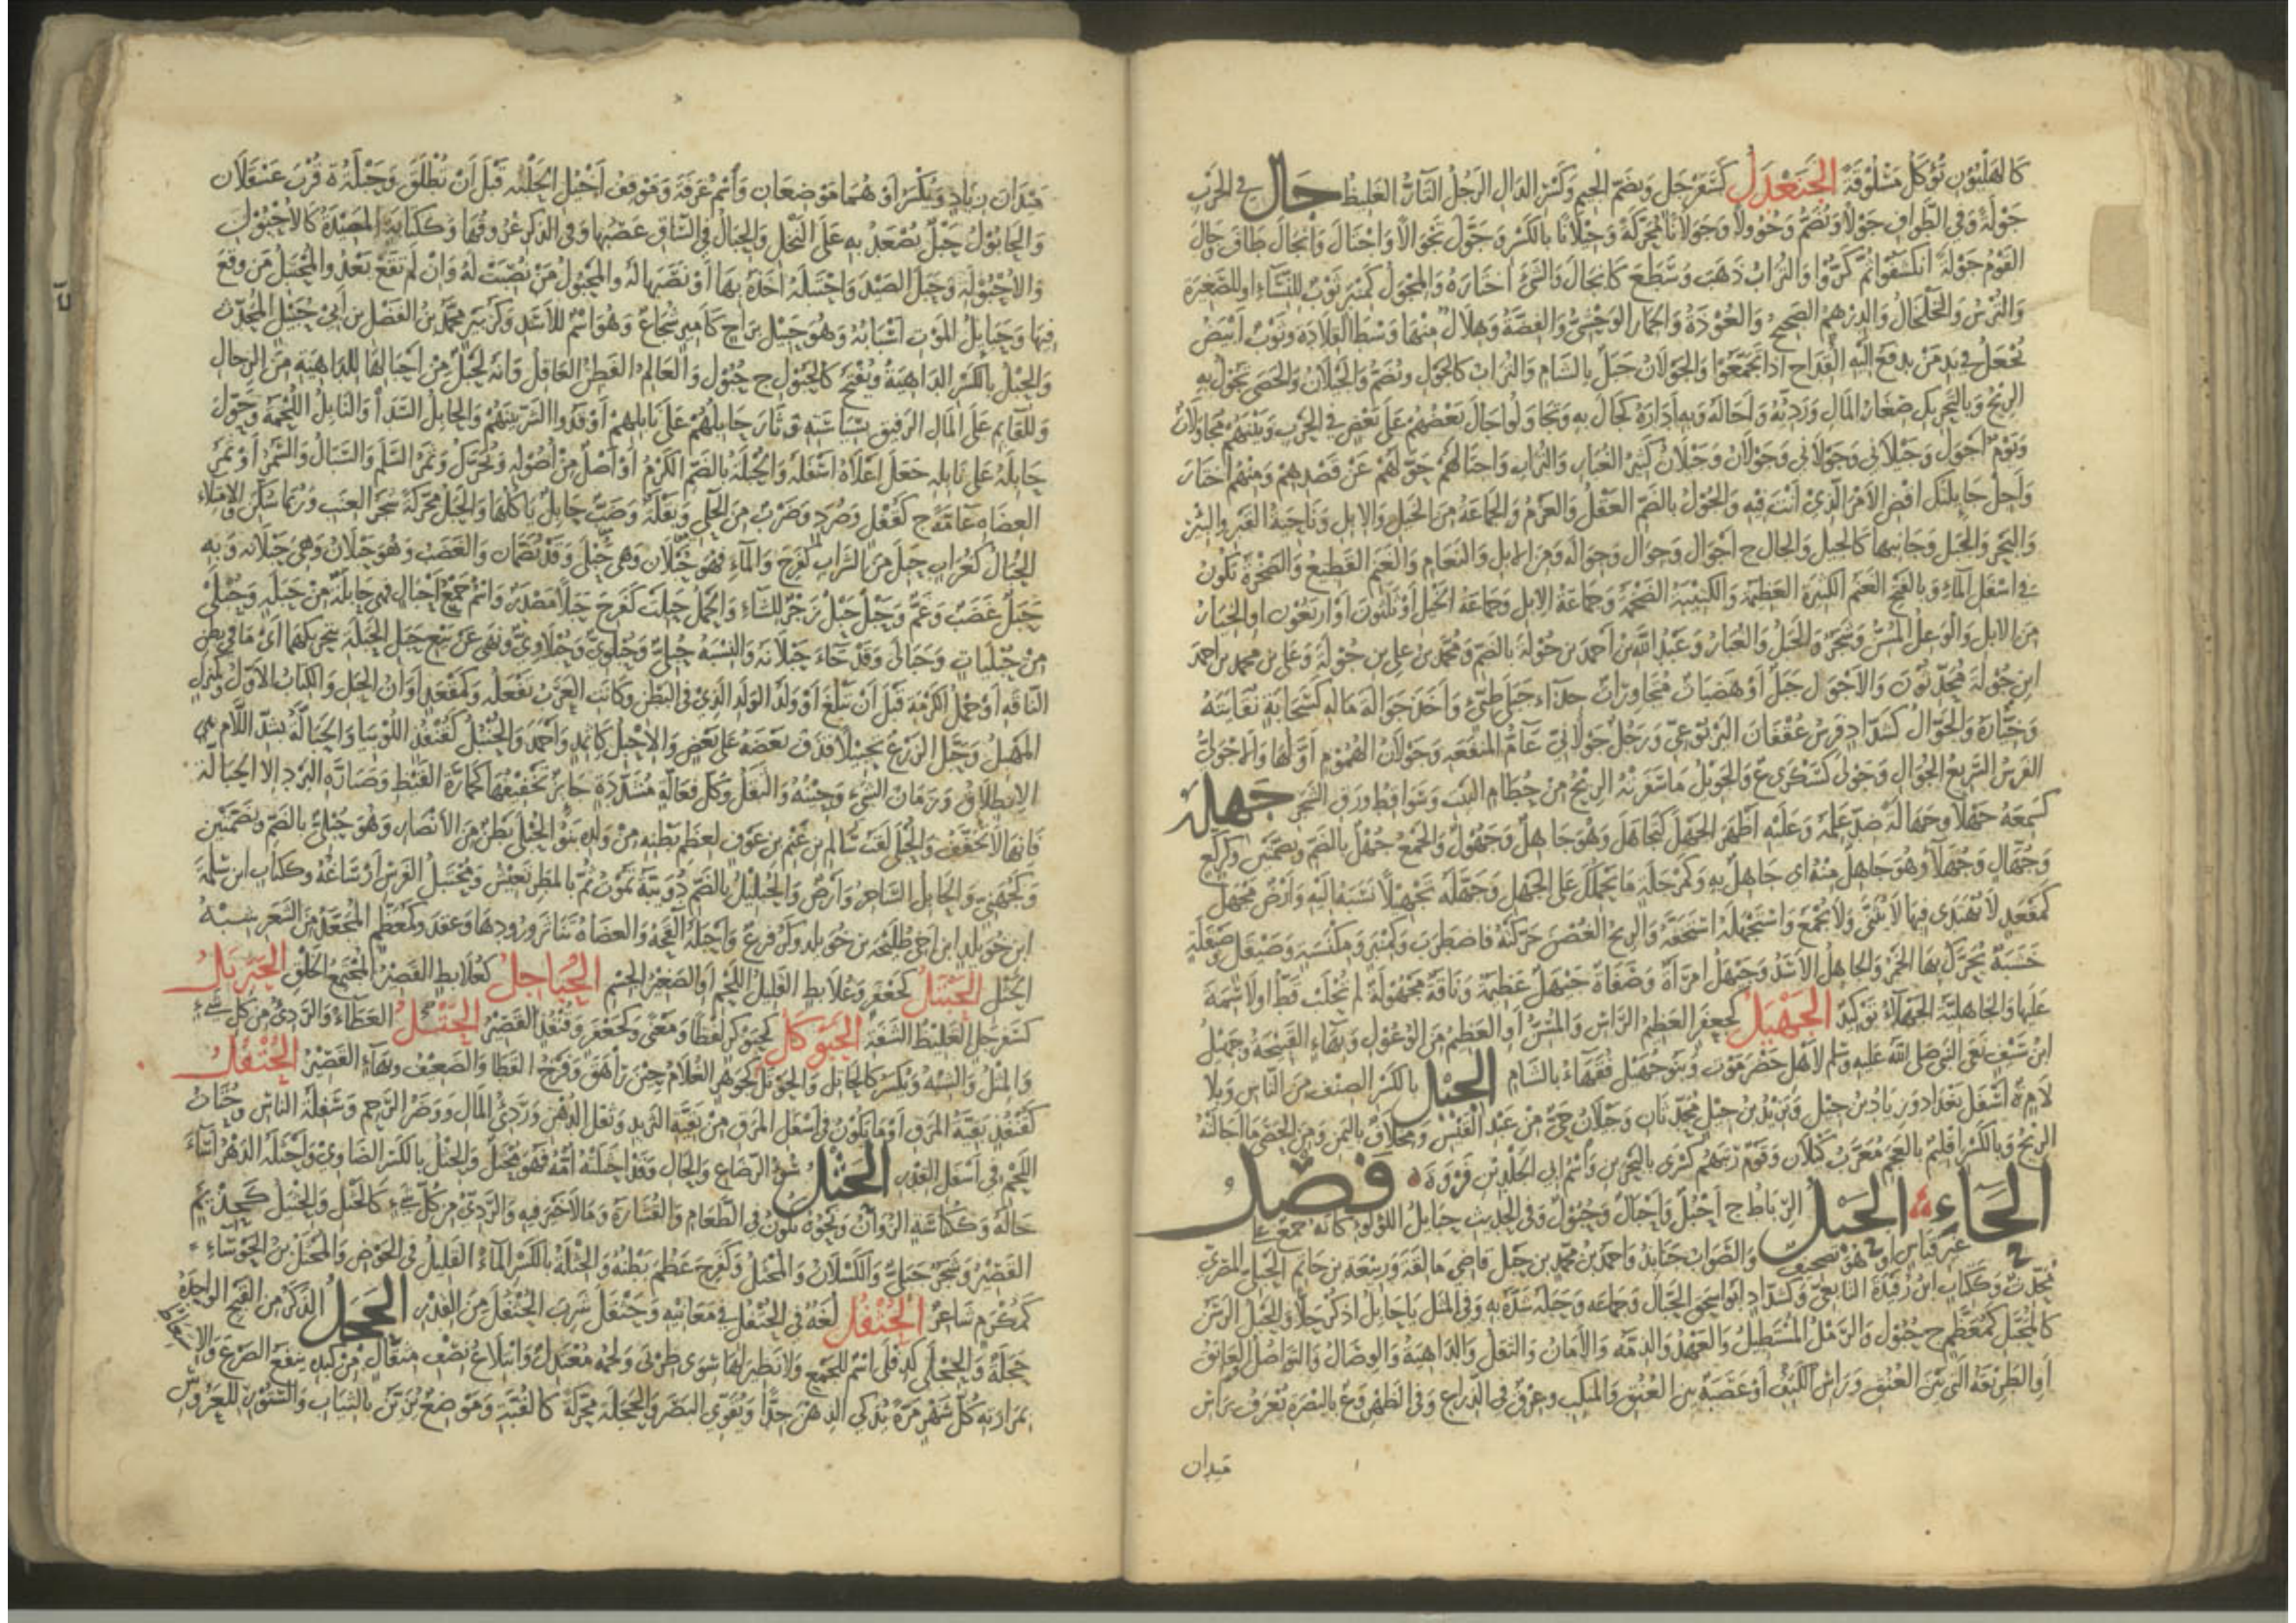 كالهليون تؤكل مسلوقة الجنعدل كسفرجل وبضم الجيم وكسر الدال الرجل التار الغليظ جال في الحرب
جولة وفي الطواف جولا ويضم وجوولا وجولانا محركة وجيلانا بالكسر وجول تجوالا واجتال وانجال طاف وجال
القوم جولة انكشفوا ثم كروا والتراب ذهب وسطع كانجال والشئ اختاره والمجول كمنبر ثوب للنساء او للصغيرة
والترس والخلخال والدرهم الصحيح والعوذة والحمار الوحشي والفضة وهلال منها وسط القلادة وثوب ابيض
يجعل في يد من يدفع اليه القداح اذا تجمعوا والجولان جبل بالشام والتراب كالجول ويضم والجيلان والحصى تجول به
الريح وبالتحريك صغار المال ورديئه واجاله وبه اداره كجال به وتجاولوا جال بعضهم على بعض في الحرب وبينهم مجاولات
ويوم اجول وجيلاني وجولاني وجولان وجيلان كثير الغبار والتراب واجتالهم حولهم عن قصدهم ومنهم اختار
واجل جائلتك اقض الامر الذي انت فيه والجول بالضم العقل والعزم والجماعة من الخيل والابل وناحية القبر والبئر
والبحر والجبل وجانبها كالجيل والجال ج اجوال وجوال وجوالة ومن الابل والنعام والغنم القطيع والصخرة تكون
في اسفل الماء وبالفتح الغنم الكثيرة العظيمة والكتيبة الضخمة وجماعة الابل وجماعة الخيل او ثلثون او اربعون او الخيار
من الابل والوعل المسن وشجرة والجبل والغبار وعبد الله بن احمد بن جولة بالضم ومحمد بن علي بن جولة وعلي بن محمد بن احمد
ابن جولة محدثون والاجول جبل او هضبات متجاورات حذاء جبلي طيئ واخذ جوالة ماله كسحابة نقايته
وخياره والجوال كشداد فرس عقفان اليربوعي ورجل جولاني عام المنفعة وجولان الهموم اولها والاجولي
الفرس السريع الجوال وجولى كسكرى ع والجويل ما سفرته الريح من حطام النبت وسواقط ورق الشجر جهله
كسمعه جهلا وجهالة ضد علمه وعليه اظهر الجهل كتجاهل وهو جاهل وجهول والجمع جهل بالضم وبضمتين وكركع
وجهال وجهلاء وهو جاهل منه اي جاهل به وكمرحلة ما يحملك على الجهل وجهله تجهيلا نسبه اليه وارض مجهل
كمقعد لا يهتدى فيها لا يثنى ولا يجمع واستجهله استخفه والريح الغصن حركته فاضطرب وكمنبر ومكنسة وصيقل وصيقلة
خشبة يحرك بها الجمر والجاهل الاسد وجيهل امرأة وصفاة جيهل عظيمة وناقة مجهولة لم تحلب قط او لا سمة
عليها والجاهلية الجهلاء توكيد الجهبل كجعفر العظيم الراس والمسن او العظيم من الوعول وبهاء القبيحة وجهبل
ابن سيف نعى النبي صلى الله عليه وسلم لاهل حضرموت وبنو جهبل فقهاء بالشام الجيل بالكسر الصنف من الناس وبلا
لام ة اسفل بغداد وزياد بن جيل ويزيد بن جيل محدثان وجيلان حي من عبد القيس ومخلاف باليمن ومن الحصى ما اجالته
الريح وبالكسر اقليم بالعجم معرب كيلان وقوم رتبهم كسرى بالبحرين واسم ابي الجلد بن فروة فصل
الحاء الحبل الرباط ج احبل واحبال وحبول وفي الحديث حبايل اللؤلؤ كانه جمع على
غير قياس او هو تصحيف والصواب جنابذ واحمد بن محمد بن حبل قاضي مالقة وربيعة بن حاتم الحبلي المصري
محدث وككتاب ابن رفيدة التابعي وكشداد ابو اسحق الحبال وجماعة وحبله شده به وفي المثل يا حابل اذكر حلا والحبل الرسن
كالمحبل كمعظم ج حبول والرمل المستطيل والعهد والذمة والامان والثقل والداهية والوصال والتواصل والعاتق
او الطريقة التي بين العنق وراس الكتف او عصبة بين العنق والمنكب وعرق في الذراع وفي الظهر وع بالبصرة يعرف براس
ميدان
ميدان زياد ويكسر او هما موضعان واسم عرفة وموقف خيل الحلبة قبل ان تطلق وحبلة ة قرب عسقلان
والحابول حبل يصعد به على النخل والحبال في الساق عصبها وفي الذكر عروقها وككتابة المصيدة كالاحبول
والاحبولة وحبل الصيد واحتبله اخذه بها او نصبها له والمحبول من نصبت له وان لم تقع بعد والمحتبل من وقع
فيها وحبايل الموت اسبابه وهو حبيل براح كامير شجاع وهو اسم للاسد وكزبير محمد بن الفضل بن ابي حبيل المحدث
والحبل بالكسر الداهية ويفتح كالحبول ج حبول والعالم الفطن العاقل وانه لحبل من احبالها للداهية من الرجال
وللقايم على المال الرفيق بسياسته وثار حابلهم على نابلهم اوقدوا الشر بينهم والحابل السدا والنابل اللحمة وحول
حابله على نابله جعل اعلاه اسفله والحبلة بالضم الكرم او اصل من اصوله ويحرك وثمر السلم والسيال والسمر او ثمر
العضاه عامة ج كقفل وصرد وضرب من الحلي وبقلة وضب حابل ياكلها والحبل محركة شجر العنب وربما سكن والامتلاء
الحبال كغراب حبل من الشراب كفرح والماء فهو حبلان وهي حبلى وقد يضمان والغضب وهو حبلان وهي حبلانة وبه
حبل غضب وغم وحبل حبل زجر للشاء والحمل حبلت كفرح حبلا مصدر واسم ج احبال فهي حابلة من حبلة وحبلى
من حبليات وحبالى وقد جاء حبلانة والنسبة حبلي وحبلوي وحبلاوي ونهى عن بيع حبل الحبلة بتحريكهما اي ما في بطن
الناقة او حمل الكرمة قبل ان تبلغ او ولد الولد الذي في البطن وكانت العرب تفعله وكمقعد اوان الحبل والكتاب الاول وكمنزل
المهبل وحبل الزرع تحبيلا قذف بعضه على بعض والاحبل كاثمد واحمد والحنبل كقنفذ اللوبيا والحبالة بشد اللام
الانطلاق وزمان الشيء وحينه والثقل وكل فعالة مشددة جايز تخفيفها كحمارة القيظ وصبارة البرد الا الحبالة
فانها لا تخفف والحبلى لقب سالم بن غنم بن عوف لعظم بطنه من ولده بنو الحبلى بطن من الانصار وهو حبلي بالضم وبضمتين
وكجهني والحابل الساحر وارض والحبليل بالضم دويبة تموت ثم بالمطر تعيش ومحتبل الفرس ارساغه وككتاب ابن سلمة
ابن خويلد ابن اخي طليحة بن خويلد وكزفر ع واحبله القحه والعضاه تناثر ورودها وعقد وكمعظم المجعد من الشعر شبه
الحبل الحبتل كجعفر وعلابط القليل اللحم او الصغير الجسم الحباجل كعلابط القصير المجتمع الخلق الحبربل
كسفرجل الغليظ الشفة الحبوكل كحبوكر لفظا ومعنى وكجعفر وقنفذ القصير الحتل العطاء والردئ من كل شئ
والمثل والشبه ويكسر كالحاتل والحوتل كجوهر الغلام حين راهق وفرخ القطا والضعيف وبهاء القصير الحتفل
كقنفذ بقية المرق او ما يكون في اسفل المرق من بقية الثريد وثفل الدهن وردئ المال ووضر الرحم وسفلة الناس وحتات
اللحم في اسفل القدر الحثل سوء الرضاع والحال وقد احثلته امه فهو محثل والحثل بالكسر الضاوي واحثله الدهر اساء
حاله وككناسة الزوان ونحوه يكون في الطعام والقشارة وما لا خير فيه والردئ من كل شئ كالحثل والحثيل كحذيم
القصير وشجر جبلي والكسلان والمحثل وكفرح عظم بطنه والحثلة بالكسر الماء القليل في الحوض والمحثل بن الحوساء
كمكرم شاعر الحثفل لغة في الحتفل في معانيه وحثفل شرب الحثفل من القدر الحجل الذكر من القبج الواحدة
حجلة والحجلى كدفلى اسم للجمع ولا نظير لها سوى ظربى ولحمه معتدل وابتلاع نصف مثقال من كبده ينفع الصرع والا
ستعاط
بمرارته كل شهر مرة يذكي الذهن جدا ويقوي البصر والحجلة محركة كالقبة وموضع يزين بالثياب والستور للعروس